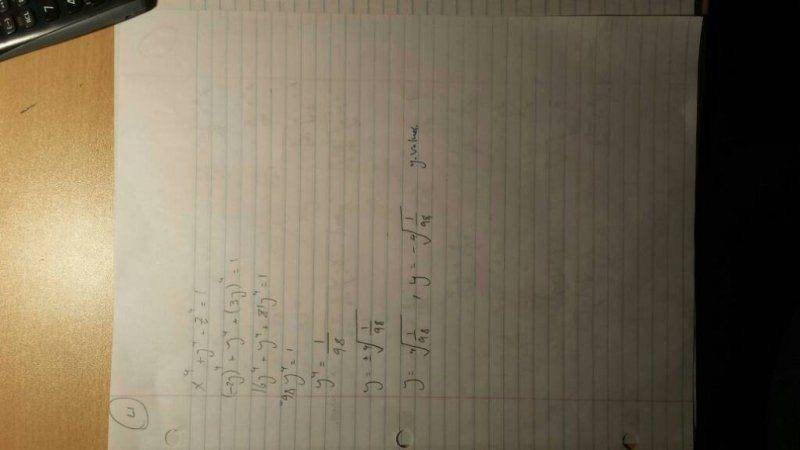 4
x⁴ + y⁴ - z⁴ = 1
(-2y)⁴ + y⁴ + (3y)⁴ = 1
16y⁴ + y⁴ + 81y⁴ = 1
98y⁴ = 1
y⁴ = 1/98
y = ± ⁴√(1/98)
y = ⁴√(1/98) , y = - ⁴√(1/98) y-values